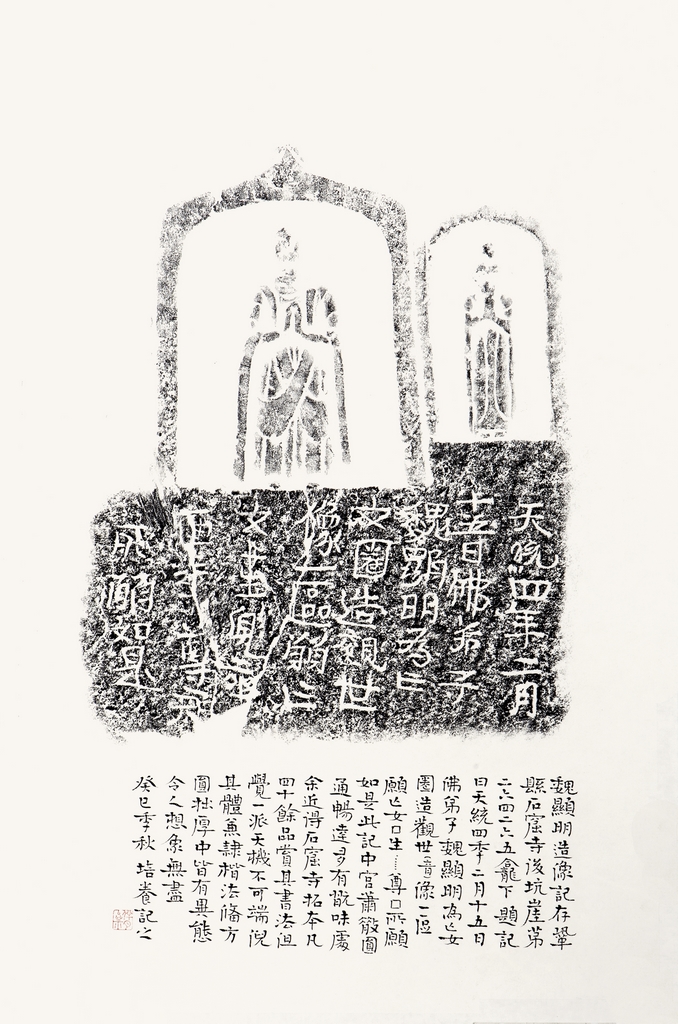 天統四年二月
十五日佛弟子
魏顯明為亡
女圊造觀世
像一區願亡
女
尊
成願如是
魏顯明造像記存鞏
縣石窟寺後坑崖第
二六四二六五龕下題記
曰天統四季二月十五日
佛弟子魏顯明為亡女
圊造觀世(音)像一區
願亡女口生……尊口所願
如是此記中宮蕭散圓
通暢達多有戲味處
余近得石窟寺拓本凡
四十餘品賞其書法但
覺一派天機不可端倪
其體兼隸楷法脩方
圓拙厚中皆有異態
令人想象無盡
癸巳季秋培養記之